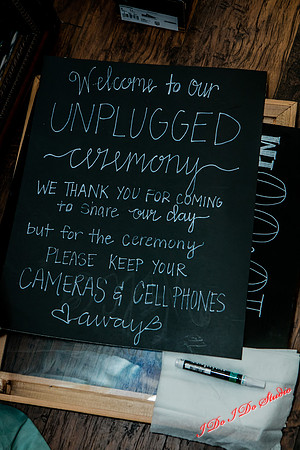 Welcome to our
UNPLUGGED
ceremony
WE THANK YOU FOR COMING
to share our day
but for the ceremony
PLEASE KEEP YOUR
CAMERAS & CELL PHONES
away
I Do I Do Studio